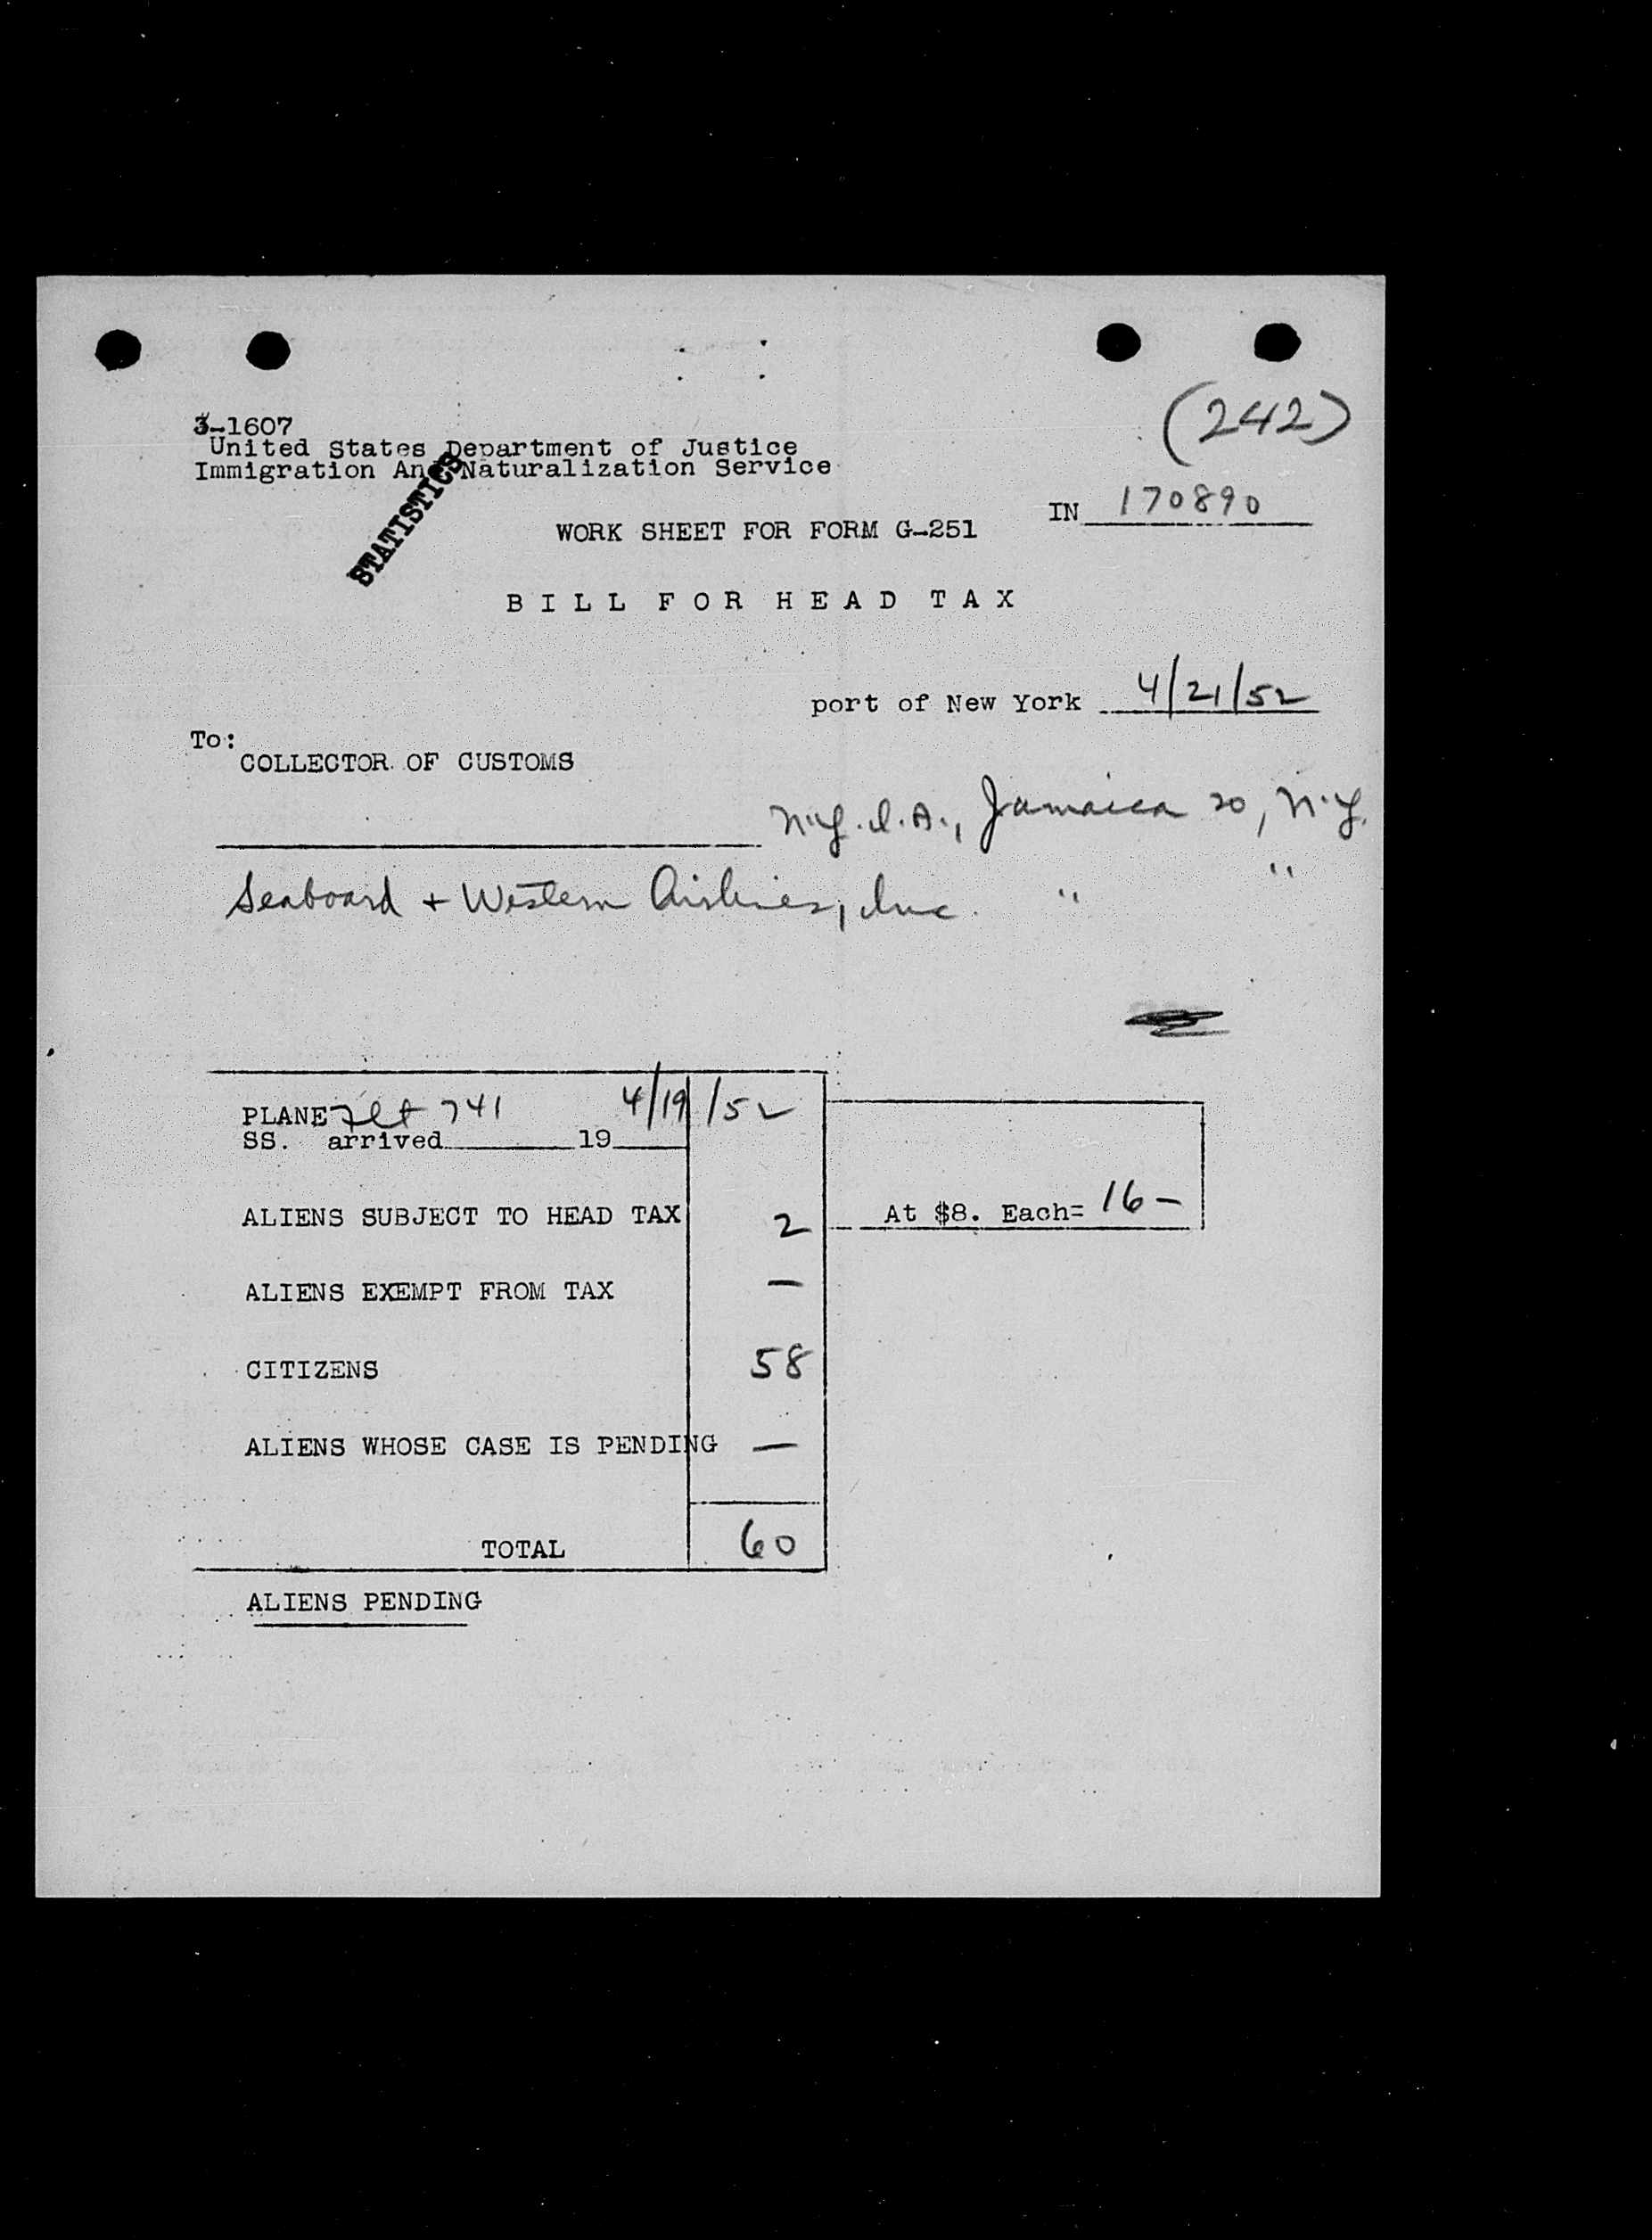 (242)
3-1607
United States Department of Justice
Immigration And Naturalization Service
STATISTICS
IN 170890
WORK SHEET FOR FORM G-251
BILL FOR HEAD TAX
port of New York 4/21/52
To:
COLLECTOR OF CUSTOMS
N.Y.I.A., Jamaica 20, N.Y.
Seaboard + Western Airlines, Inc. " "
PLANE Flt 741 4/19/52
SS. arrived 19
ALIENS SUBJECT TO HEAD TAX 2 At $8. Each= 16 -
ALIENS EXEMPT FROM TAX —
CITIZENS 58
ALIENS WHOSE CASE IS PENDING —
TOTAL 60
ALIENS PENDING